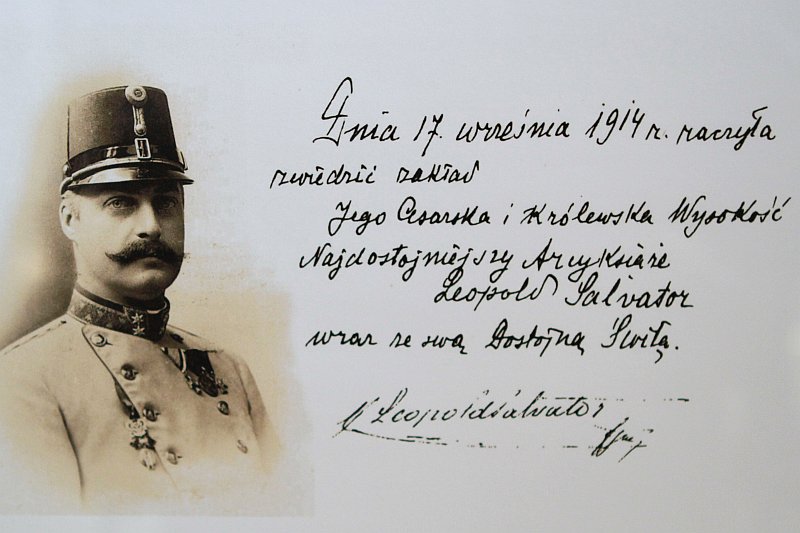 Dnia 17. września 1914 r. raczyła
zwiedzić zakład
Jego Cesarska i Królewska Wysokość
Najdostojniejszy Arcyksiąże
Leopold Salvator
wraz ze swą Dostojną Świtą.
Leopold Salvator